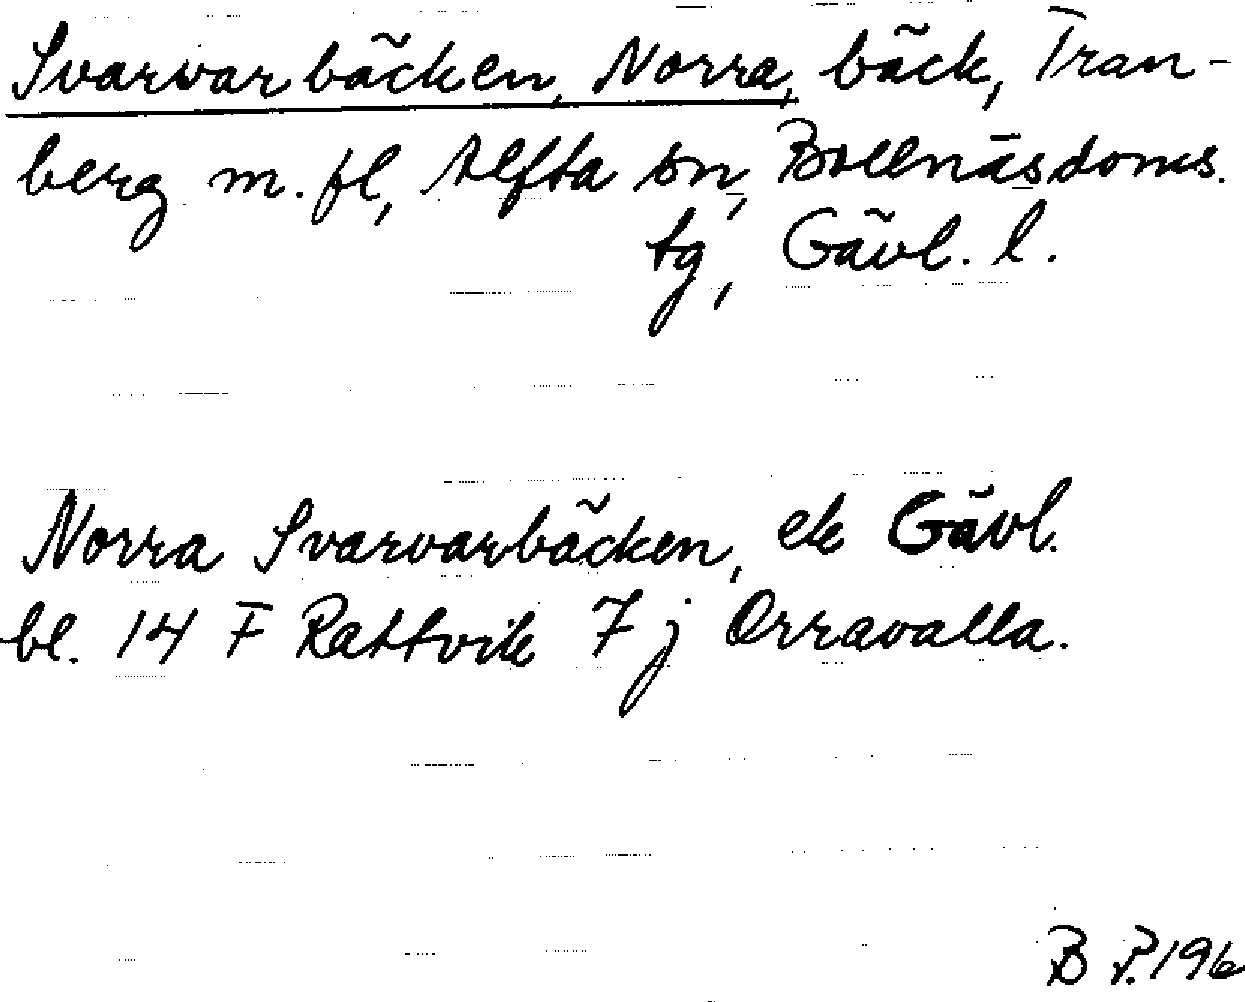 Svarvarbäcken, Norra, bäck, Tran-
berg m.fl, Alfta sn, Bollnäs doms.
tg, Gävl. l.
Norra Svarvarbäcken, ek Gävl.
bl. 14 F Rättvik 7 j Orravalla.
B P. 196